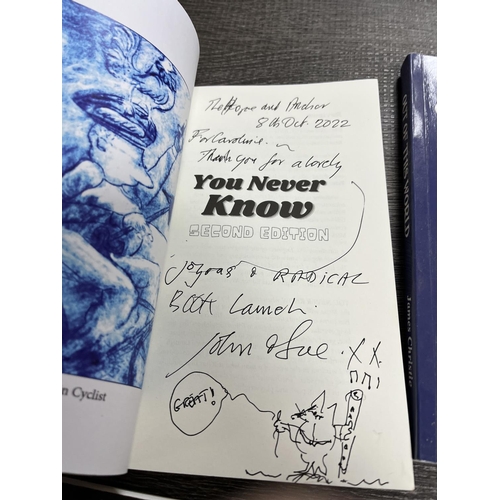 The Hope and Anchor
8th Oct. 2022
For Caroline.
Thank you for a lovely
You Never
Know
SECOND EDITION
joyous & RADICAL
Book Launch.
John & Sue .XX
GREAT!
n Cyclist
OUT OF THIS WORLD
James Christie